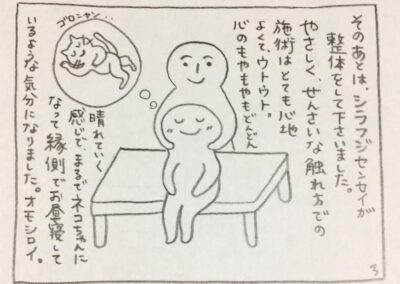 そのあとは、シラフジセンセイが
整体をして下さいました。
やさしく、せんさいな触れ方での
施術はとても心地
よくて、ウトウト。
心のもやもやもどんどん
晴れていく
感じで、まるでネコちゃんに
なって縁側でお昼寝して
いるような気分になりました。オモシロイ。
ゴロニャン・・
3